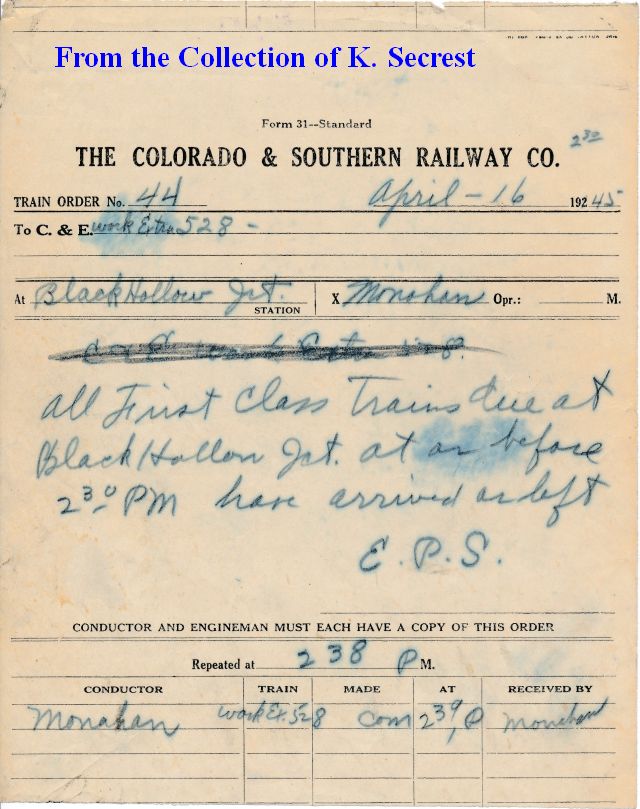 From the Collection of K. Secrest
Form 31--Standard
2 30
THE COLORADO & SOUTHERN RAILWAY CO.
TRAIN ORDER No. 44 April - 16 192 45
To C. & E. work Extra 528 -
At Black Hollow Jct. STATION X Monahan Opr.: M.
All First Class Trains due at
Black Hollow Jct. at or before
2 30 PM have arrived or left
E. P. S.
CONDUCTOR AND ENGINEMAN MUST EACH HAVE A COPY OF THIS ORDER
Repeated at 2 38 P M.
CONDUCTOR TRAIN MADE AT RECEIVED BY
Monahan work Ex. 528 Com 2 39 P